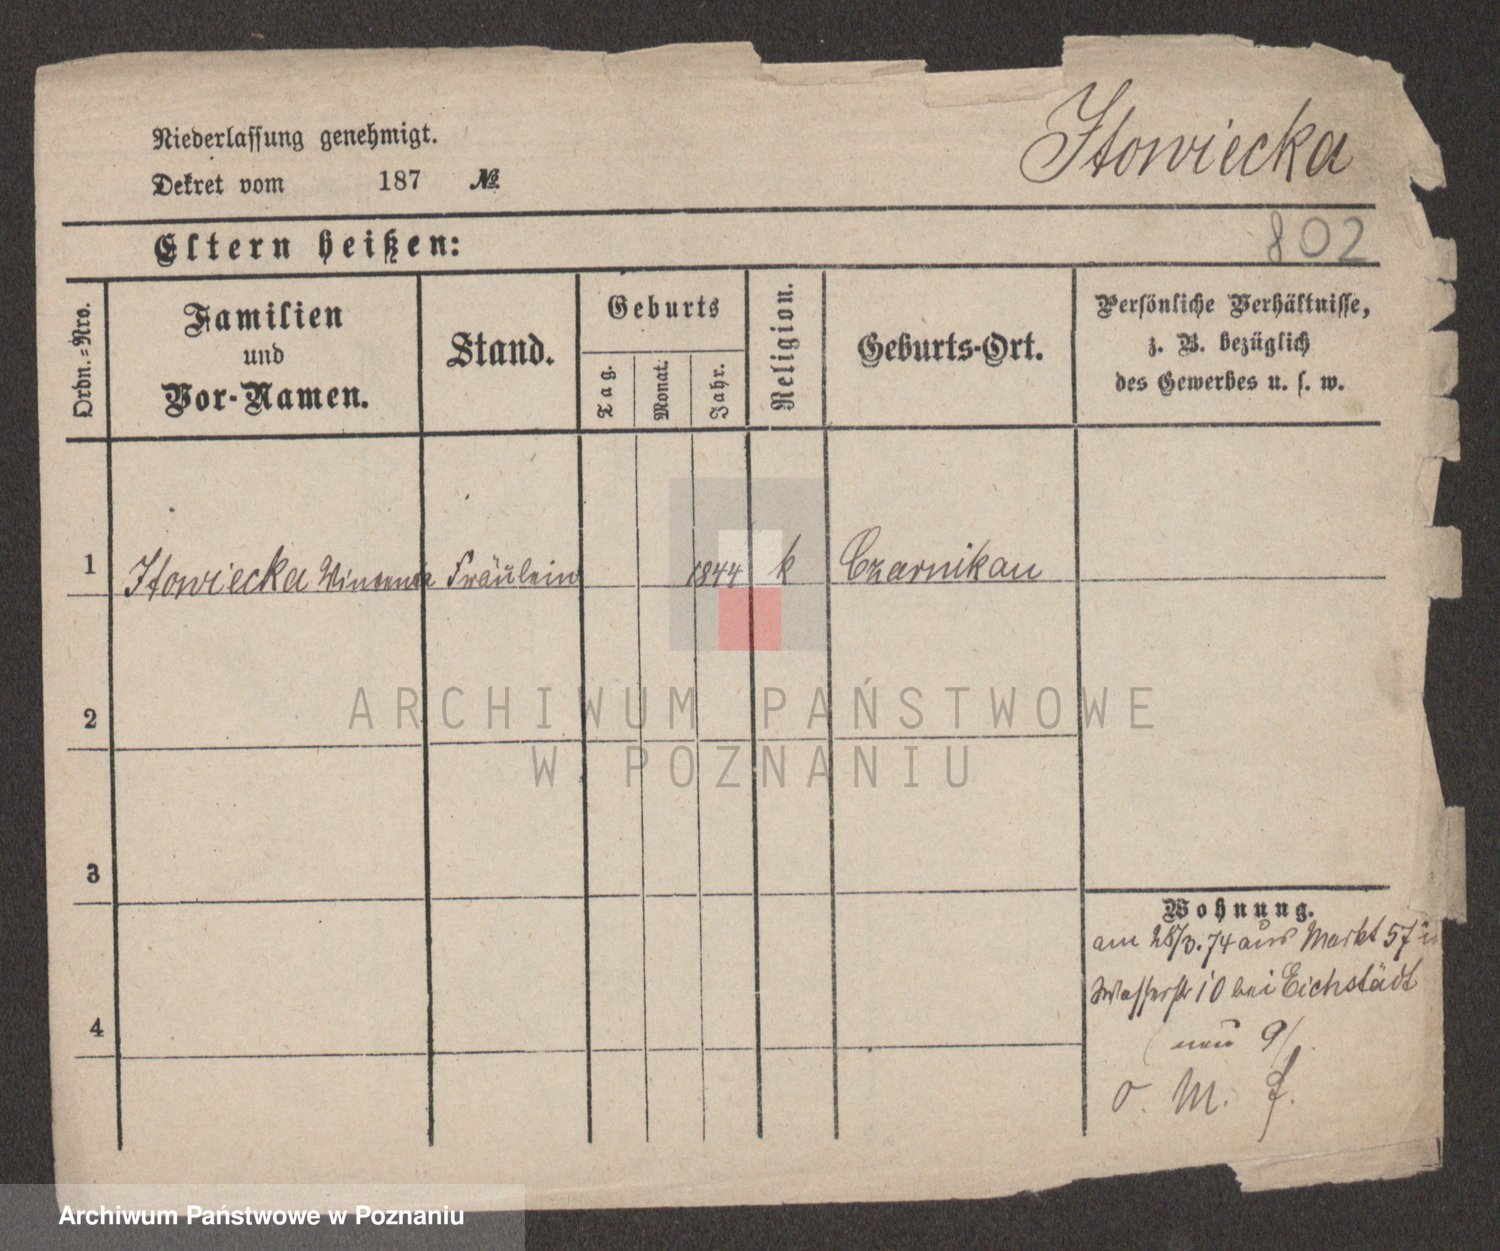 Niederlassung genehmigt.
Dekret vom 187 №
Itowiecka
802
Eltern heißen:
Ordn.=Nro.
Familien
und
Vor-Namen.
Stand.
Geburts
Tag.
Monat.
Jahr.
Religion.
Geburts-Ort.
Persönliche Verhältnisse,
z. B. bezüglich
des Gewerbes u. s. w.
1 Itowiecka Fräulein 1844 k Czarnikau
2
3
4
Wohnung.
am 28/3.74 aus Markt 57 in
Wasserstr 10 bei Eichstädt
(neu 9/
o. M. f.
ARCHIWUM PAŃSTWOWE
W POZNANIU
Archiwum Państwowe w Poznaniu